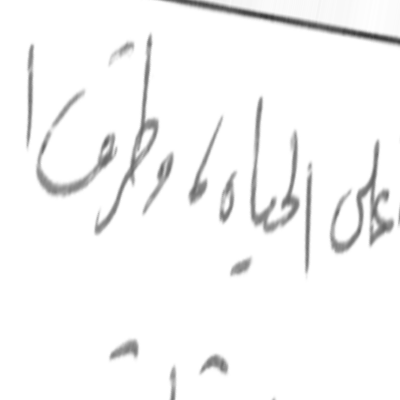 على الحياه، وطرق ا